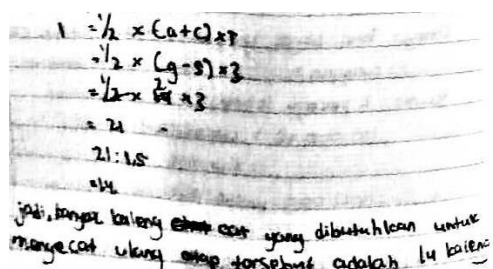 1 = 1/2 × (a+c) × t
= 1/2 × (9-5) × 3
= 1/2 × × 3
= 21
21 : 1,5
= 14
jadi, banyak kaleng cat yang dibutuhkan untuk
mengecat ulang atap tersebut adalah 14 kaleng